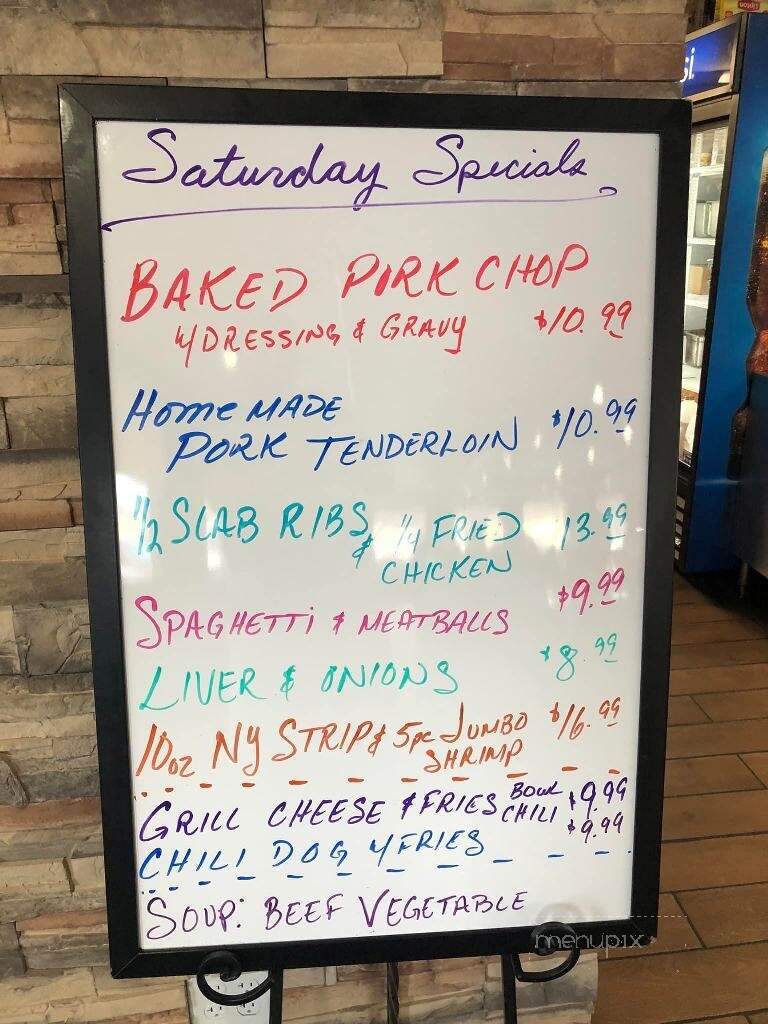 Saturday Specials
BAKED PORK CHOP
W/ DRESSING & GRAVY $10.99
HOMEMADE
PORK TENDERLOIN $10.99
1/2 SLAB RIBS & 1/4 FRIED 13.99
CHICKEN
SPAGHETTI & MEATBALLS $9.99
LIVER & ONIONS $8.99
10oz NY STRIP & 5pc JUMBO $16.99
SHRIMP
GRILL CHEESE & FRIES BOWL CHILI $9.99
CHILI DOG W/ FRIES $9.99
SOUP: BEEF VEGETABLE
menupix
si